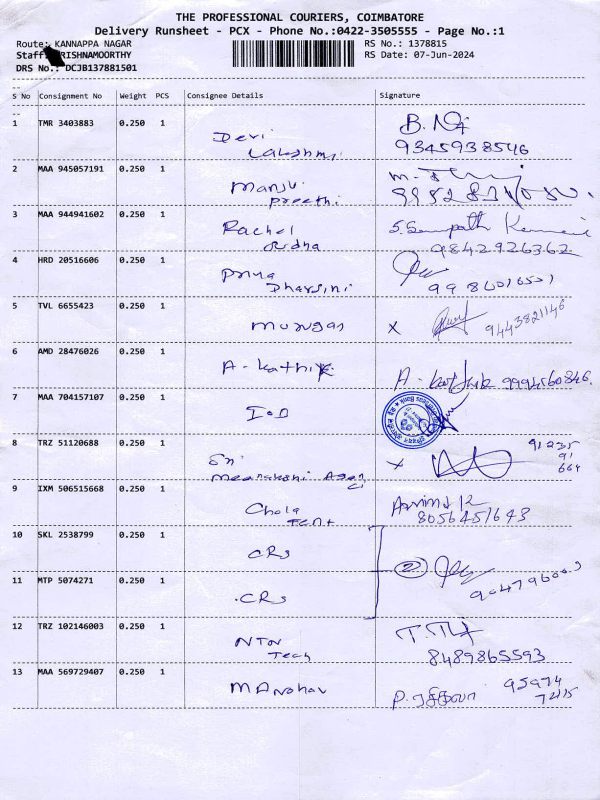 THE PROFESSIONAL COURIERS, COIMBATORE
Delivery Runsheet - PCX - Phone No.:0422-3505555 - Page No.:1
Route: KANNAPPA NAGAR RS No.: 1378815
Staff: RISHNAMOORTHY RS Date: 07-Jun-2024
DRS No.: DCJB137881501
S No Consignment No Weight PCS Consignee Details Signature
1 TMR 3403883 0.250 1 Devi B.
Lakshmi 9345938546
2 MAA 945057191 0.250 1 Manju m.
Preethi
3 MAA 944941602 0.250 1 Rachel S. Sampath
Ridha 9842926362
4 HRD 20516606 0.250 1 Priya
Dharsini
5 TVL 6655423 0.250 1 Murugan x 9443821146
6 AMD 28476026 0.250 1 A-Kathik A-
7 MAA 704157107 0.250 1 IOB
8 TRZ 51120688 0.250 1 Sri x 91235
Meenakshi 91
664
9 IXM 506515668 0.250 1 Chola Arvind K
Tent 8056451643
10 SKL 2538799 0.250 1 CRS
2
11 MTP 5074271 0.250 1 CRS
12 TRZ 102146003 0.250 1 NTN
Tech 8489865593
13 MAA 569729407 0.250 1 Manohar P. 95974